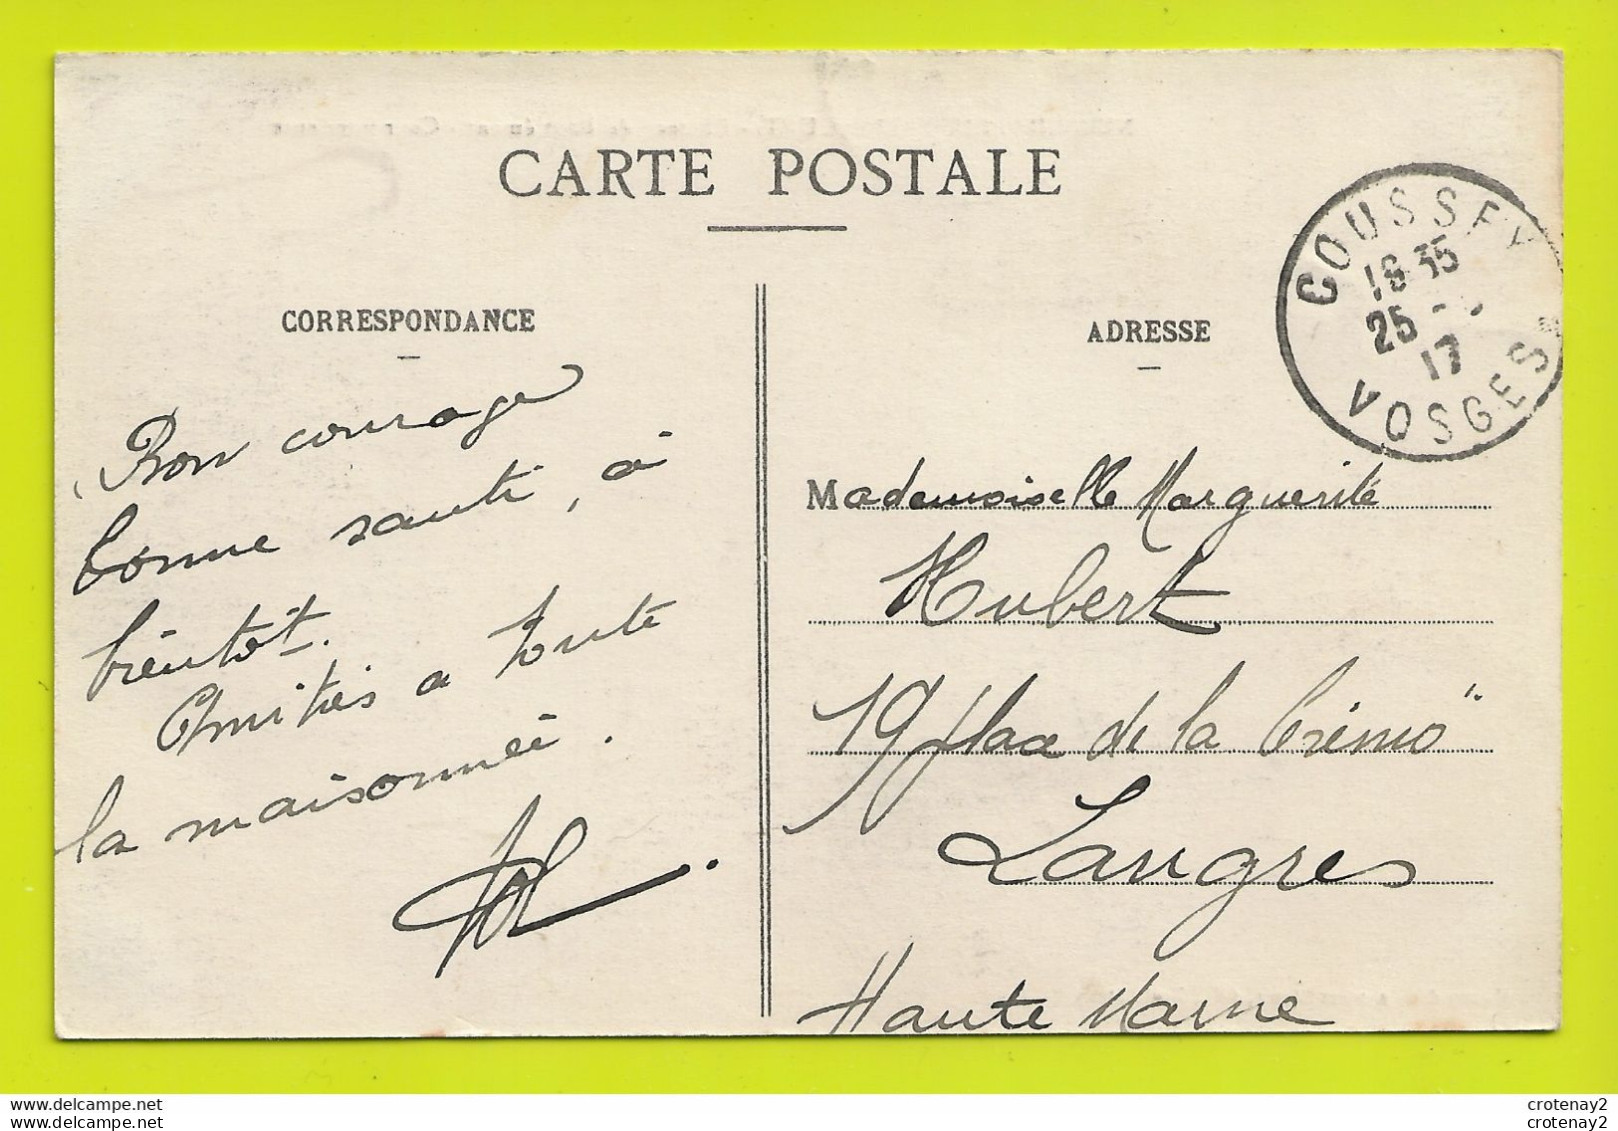 CARTE POSTALE
CORRESPONDANCE
Bon courage
bonne santé, à
bientôt.
Amitiés a toute
la maisonnée.
ADRESSE
COUSSEY
18 35
25 -
17
VOSGES
Mademoiselle Marguerite
Hubert
19 place de la Crémo"
Langres
Haute Marne
www.delcampe.net
www.delcampe.net
crotenay2
crotenay2